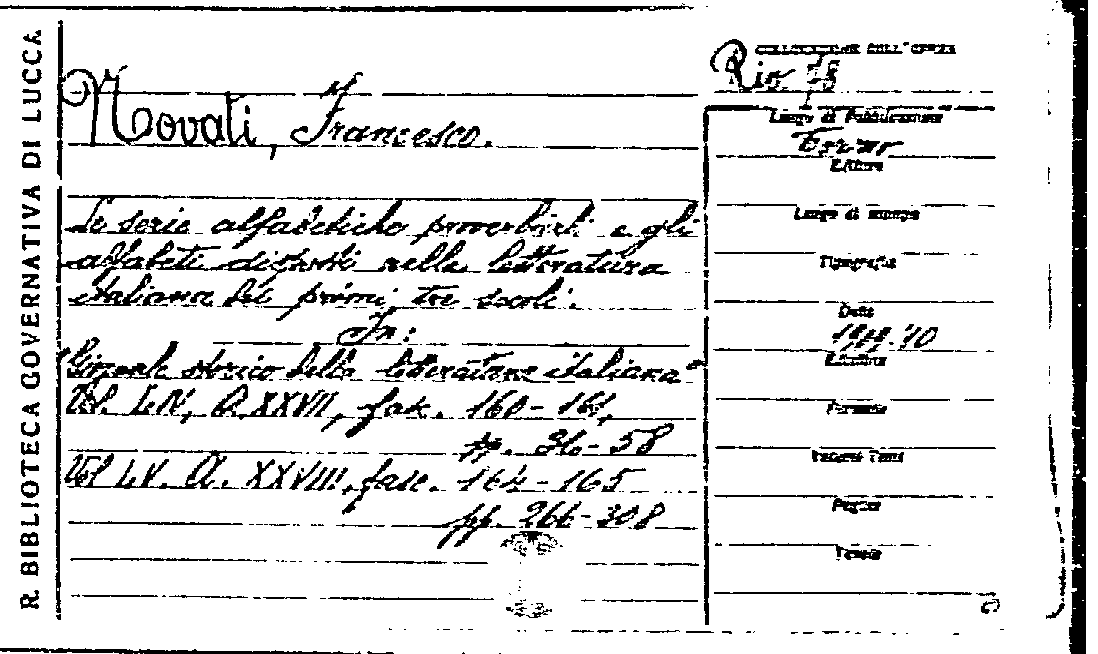 R. BIBLIOTECA GOVERNATIVA DI LUCCA
COLLOCAZIONE DELL'OPERA
Riv. 78
Novati, Francesco.
Le serie alfabetiche proverbiali e gli
alfabeti disposti nella letteratura
italiana dei primi tre secoli.
In:
"Giornale storico della letteratura italiana"
Vol. LIV, A. XXVII, fasc. 160-161,
pp. 36-58
Vol LV. A. XXVIII, fasc. 164-165
pp. 266-308
Luogo di Pubblicazione
Torino
Editore
Luogo di stampa
Tipografia
Data
1909-10
Edizione
Formato
Volumi Tomi
Pagine
Tavole